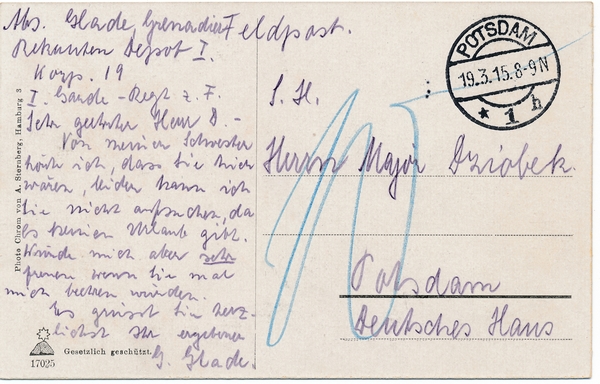 Abs. Glade, Grenadier Feldpost.
Rekruten Depot I.
Korp. 19
I. Garde-Regt z. F.
Sehr geehrter Herr D.-
Von meiner Schwester
hörte ich, dass Sie hier
wären, leider kann ich
Sie nicht aufsuchen, da
es keinen Urlaub gibt.
Würde mich aber sehr
freuen wenn Sie mal
mich würden.
Es grüsst Sie herz-
lichst Ihr ergebener
G. Glade.
POTSDAM
19.3.15.8-9N
* 1 h
S. H.
Herrn Major Dziobek.
Potsdam
Deutsches Haus
Photo Chrom von A. Sternberg, Hamburg 3
Gesetzlich geschützt.
17025